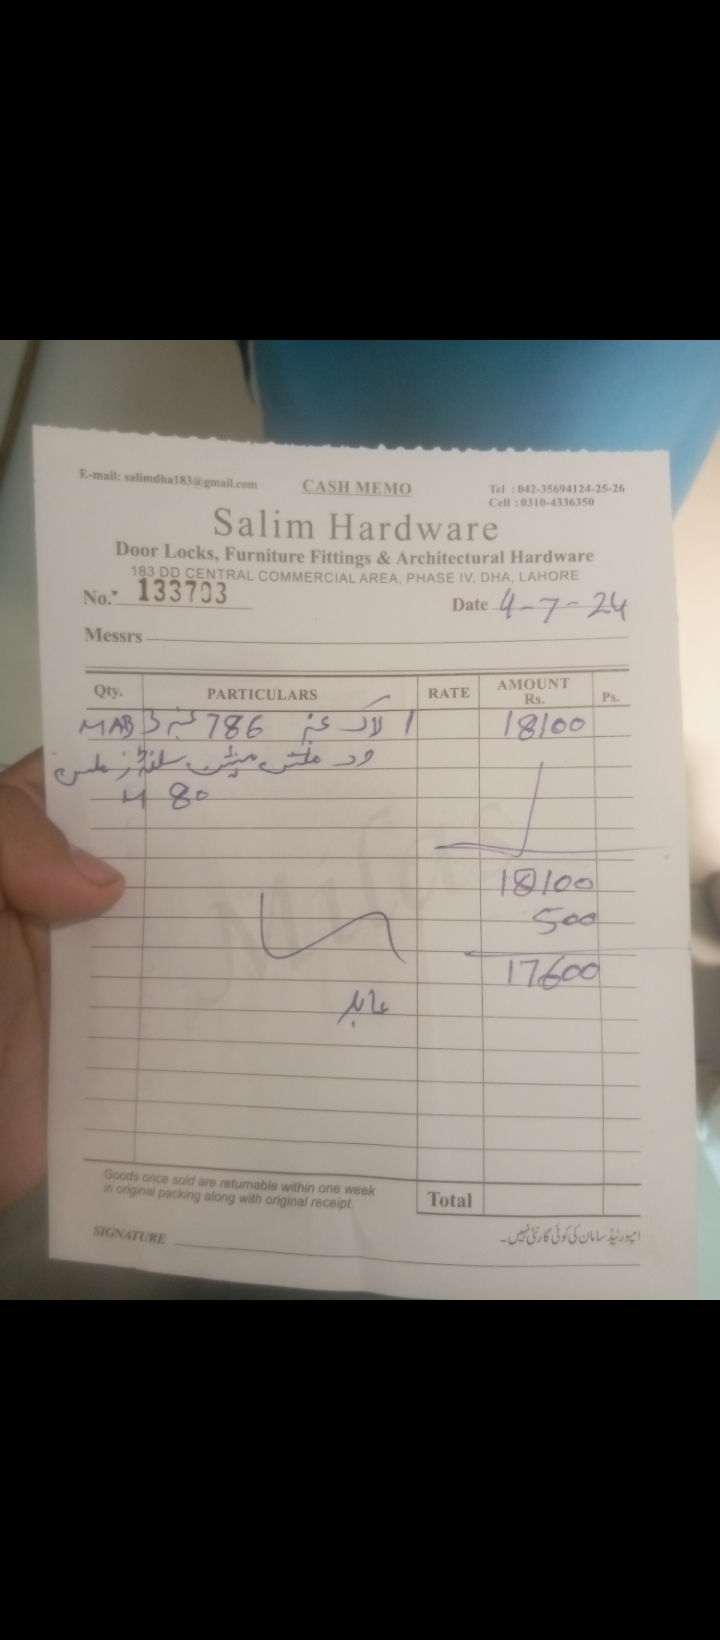 E-mail: salimdha183@gmail.com
CASH MEMO
Tel : 042-35694124-25-26
Cell : 0310-4336350
Salim Hardware
Door Locks, Furniture Fittings & Architectural Hardware
183 DD CENTRAL COMMERCIAL AREA, PHASE IV, DHA, LAHORE
No. 133703
Date 4-7-24
Messrs
Qty. PARTICULARS RATE AMOUNT Rs. Ps.
1 لاک 786 MAB 18100
80
18100
500
17600
Goods once sold are returnable within one week
in original packing along with original receipt.
Total
SIGNATURE
امپورٹیڈ سامان کی کوئی گارنٹی نہیں۔